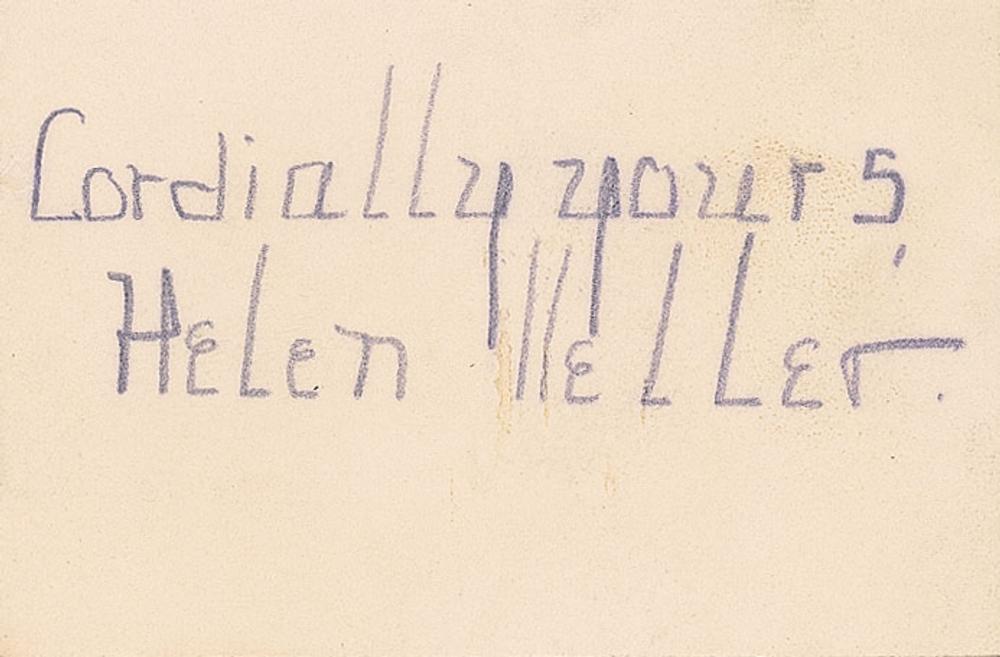 Cordially yours,
Helen Keller.